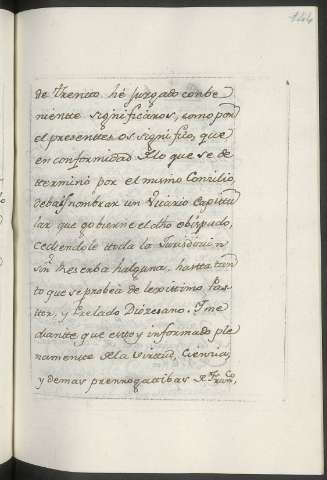 144
de Trento. hé juzgado conbe
niente significaros, como por
el presente os significo, que
en conformidad de lo que se de
terminó por el mismo Conzilio,
debais nombrar un Vicario Capitu
lar que gobierne el dho obispado,
cediendole toda la Jurisdizion
sin reserba halguna, hasta tan
to que se probea de lexitimo Pas
tor, y Prelado Diozesano. Y me
diante que estoy informado ple
namente de la Virtud, Ciencia,
y demas prerrogattibas de Frco